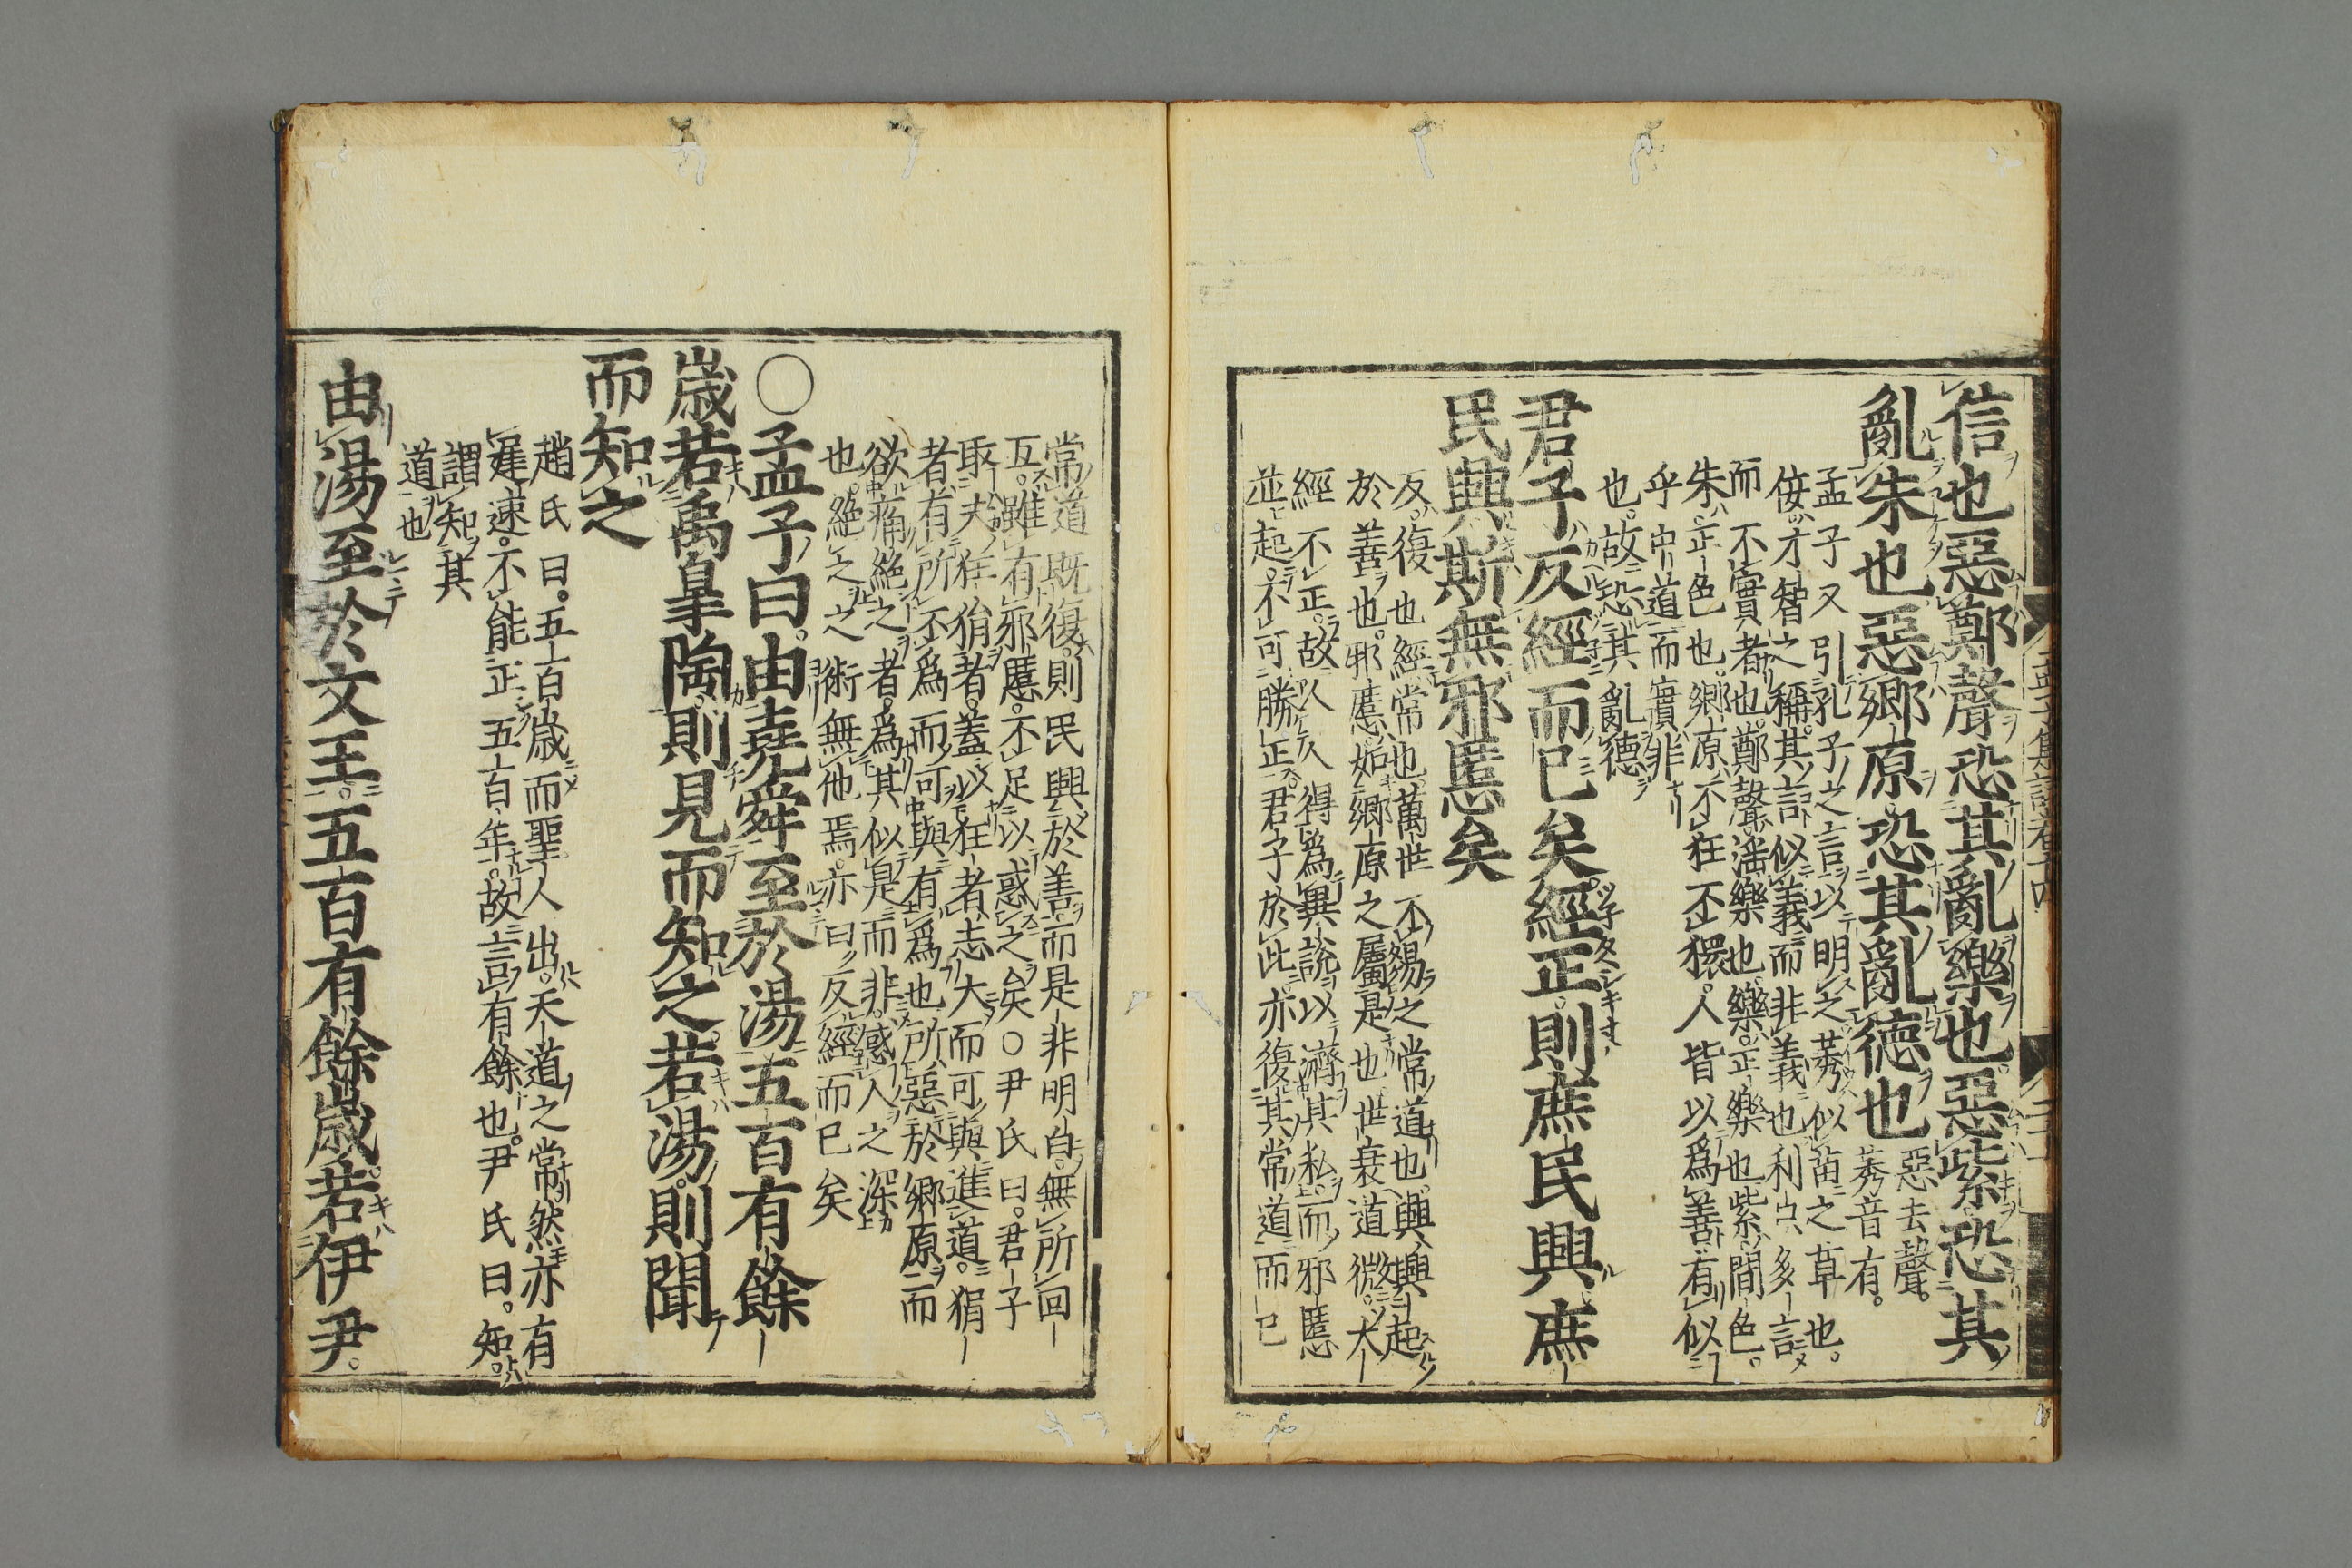 信也惡鄭聲恐其亂樂也惡紫恐其
亂朱也惡鄉原恐其亂德也
惡去聲。
莠音有。
孟子又引孔子之言以明之莠似苗之草也。
佞才智之稱。其言似義而非義也利口多言
而不實者也。鄭聲淫樂也樂正樂也紫間色。
朱正色也。鄉原不狂不獧。人皆以爲善有似
乎中道而實非
也。故恐其亂德
君子反經而已矣。經正。則庶民興庶
民興斯無邪慝矣
反復也經常也。萬世不易之常道也。興興起
於善也。邪慝如鄉原之屬是也世衰道微。大
經不正。故人人得爲異說以濟其私。而邪慝
並起。不可勝正。君子於此。亦復其常道而已
常道既復。則民興於善而是非明白。無所回
互。雖有邪慝。不足以惑之矣○尹氏曰。君子
取夫狂狷者。蓋以狂者志大而可與進道。狷
者有所不爲而可與有爲也所惡於鄉原而
欲痛絕之者。爲其似是而非。惑人之深
也。絕之之術無他焉。亦曰反經而已矣
○孟子曰。由堯舜至於湯五百有餘
歲若禹皐陶。則見而知之。若湯。則聞
而知之
趙氏曰。五百歲而聖人出。天道之常。然亦有
遲速。不能正五百年。故言有餘也。尹氏曰。知。
謂知其
道也
由湯至於文王。五百有餘歲。若伊尹。